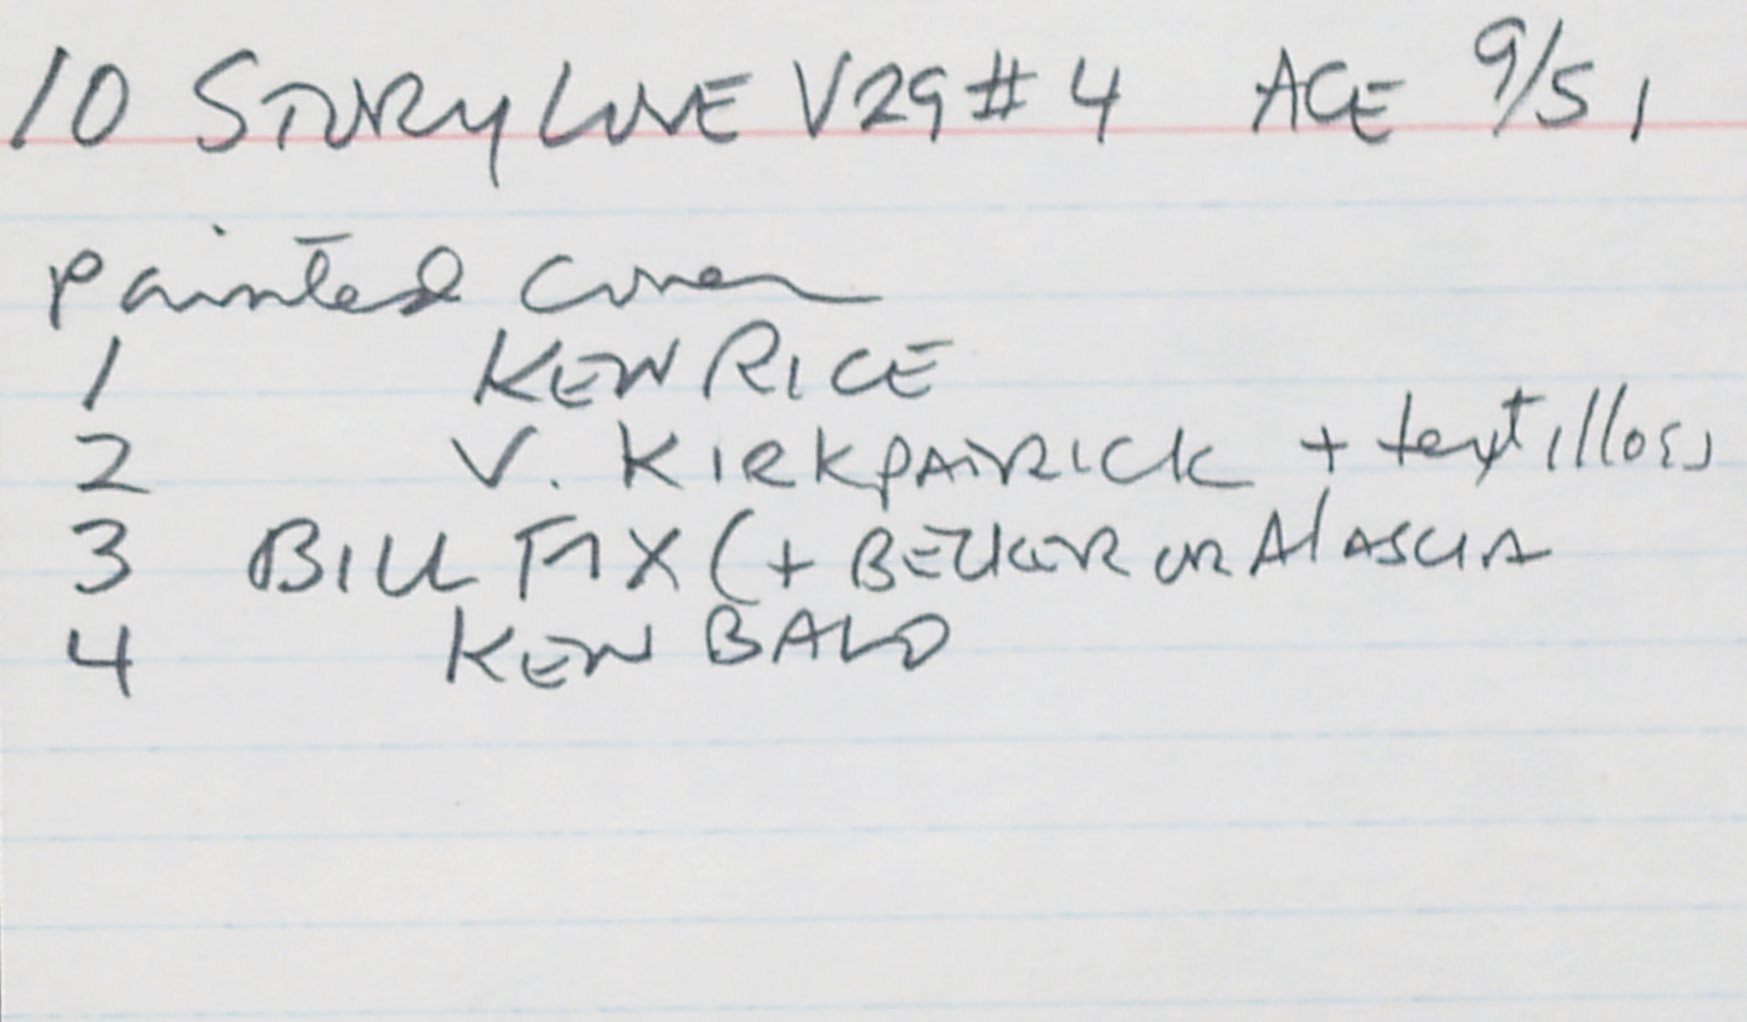 10 STORY LOVE V29 #4 ACE 9/51
painted cover
1 KEN RICE
2 V. KIRKPATRICK + text illos
3 BILL FIX (+ BECKER OR AlASCIA
4 KEN BALD